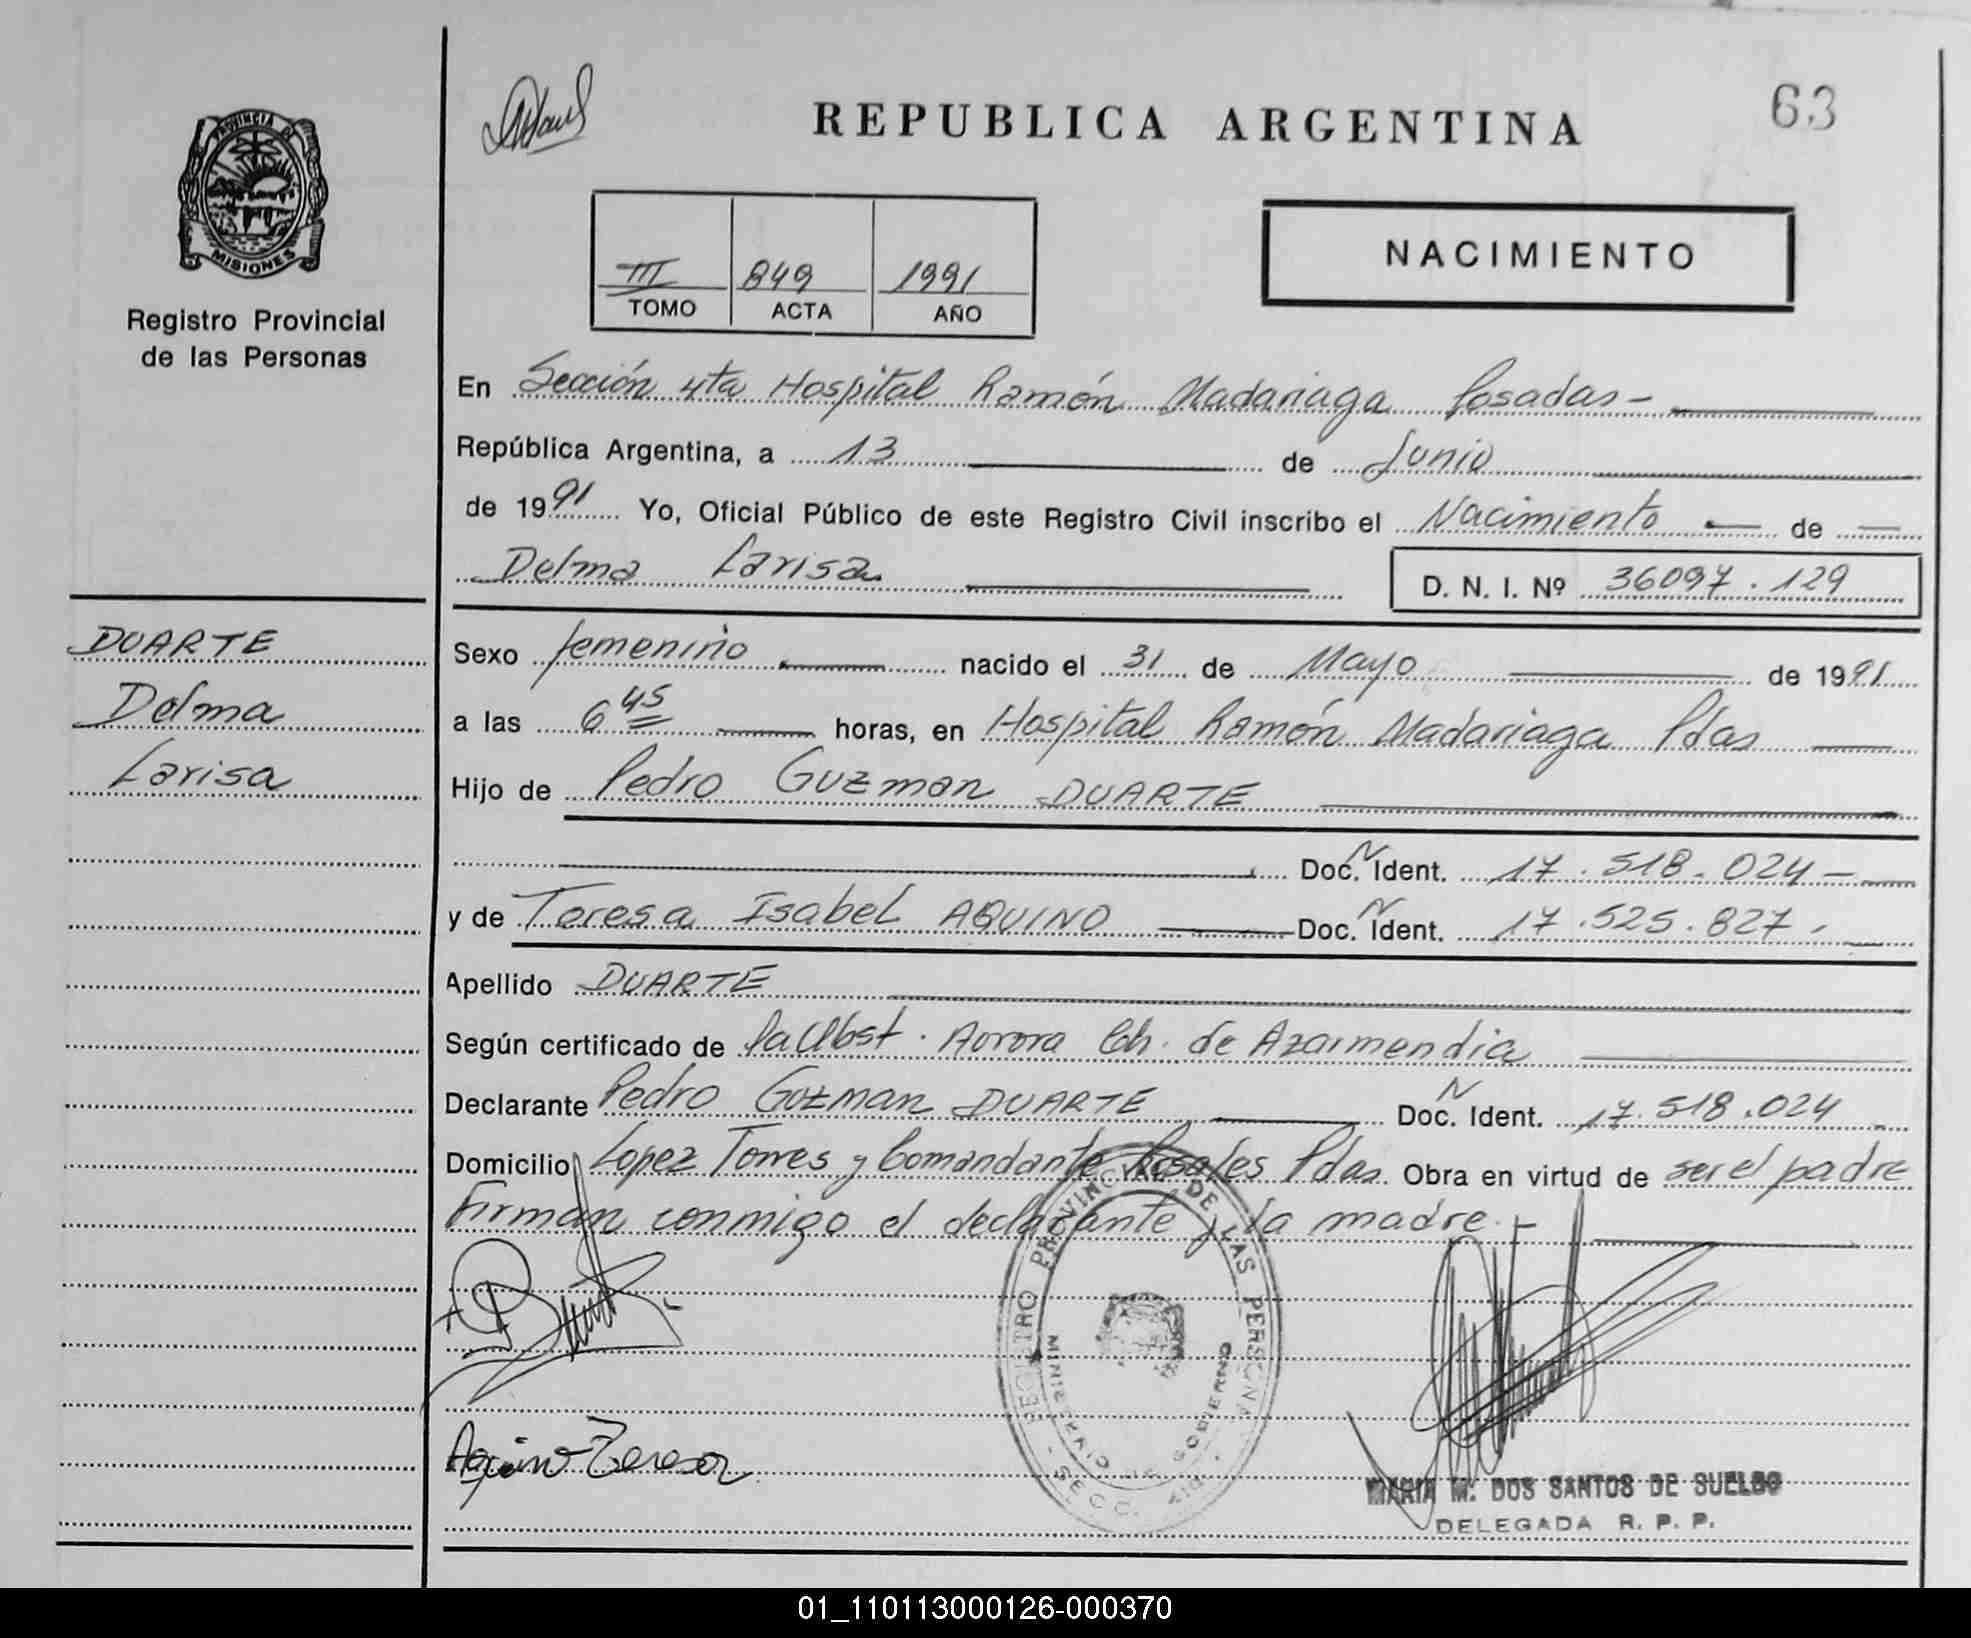 REPUBLICA ARGENTINA
63
PROVINCIA D
MISIONES
Registro Provincial
de las Personas
III 849 1991
TOMO ACTA AÑO
NACIMIENTO
En Sección 4ta Hospital Ramón Madariaga Posadas-
República Argentina, a 13 de Junio
de 1991 Yo, Oficial Público de este Registro Civil inscribo el Nacimiento de
Delma Larisa D. N. I. Nº 36097.129
DUARTE
Delma
Larisa
Sexo femenino nacido el 31 de Mayo de 1991
a las 6 45 horas, en Hospital Ramón Madariaga Pdas
Hijo de Pedro Guzman DUARTE
Doc. N Ident. 17.518.024-
y de Teresa Isabel AQUINO Doc. N Ident. 17.525.827.
Apellido DUARTE
Según certificado de la Obst. Aurora Ch. de Azarmendia
Declarante Pedro Guzman DUARTE Doc. N Ident. 17.518.024
Domicilio Lopez Torres y Comandante Rosales Pdas. Obra en virtud de ser el padre
Firman conmigo el declarante y la madre.-
REGISTRO PROVINCIAL DE LAS PERSONAS
MINISTERIO DE GOBIERNO
SECC.
Aquino Teresa
MARIA M. DOS SANTOS DE SUELDO
DELEGADA R. P. P.
01_110113000126-000370